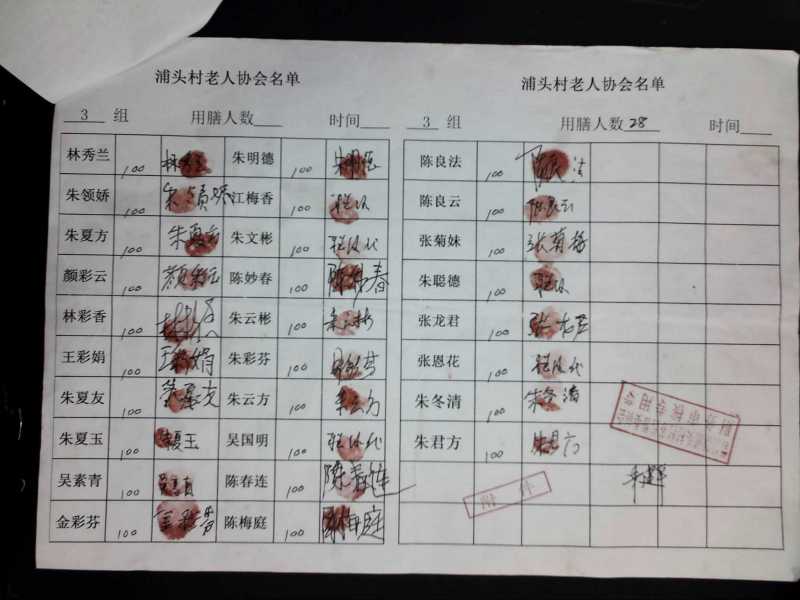 浦头村老人协会名单
3 组 用膳人数 时间
林秀兰 100 林秀兰 朱明德 100 朱明德
朱领娇 100 江梅香 100
朱夏方 100 朱夏方 朱文彬 100
颜彩云 100 颜彩云 陈妙春 100 陈妙春
林彩香 100 朱云彬 100 朱云彬
王彩娟 100 王彩娟 朱彩芬 100
朱夏友 100 朱夏友 朱云方 100 朱云方
朱夏玉 100 夏玉 吴国明 100
吴素青 100 陈春连 100 陈春连
金彩芬 100 陈梅庭 100 陈梅庭
浦头村老人协会名单
3 组 用膳人数 28 时间
陈良法 100 陈良法
陈良云 100 陈良云
张菊妹 100
朱聪德 100
张龙君 100 张龙君
张恩花 100
朱冬清 100 朱冬清
朱君方 100 朱君方
附件